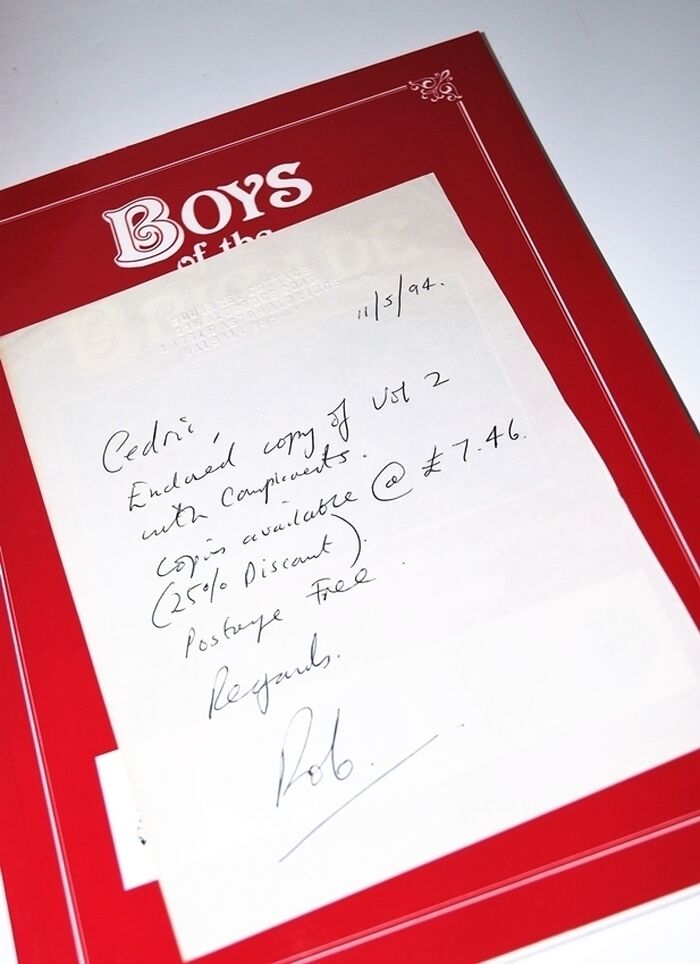 BOYS
of the
SQUIRREL COTTAGE
LITTLE ASTON
11/5/94.
Cedric,
Enclosed copy of Vol 2
with Compliments.
Copies available @ £7.46.
(25% Discount).
Postage Free.
Regards.
Rob.